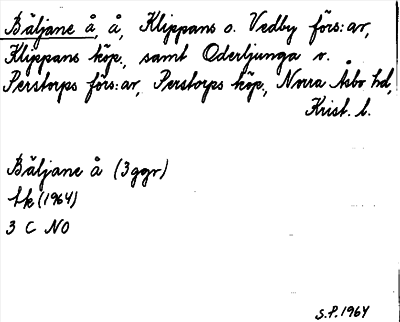 Bäljane å, å, Klippans o. Vedby förs:ar,
Klippans köp., samt Oderljunga o.
Perstorps förs:ar, Perstorps köp., Norra Åsbo hd,
Krist. l.
Bäljane å (3 ggr)
Ek (1964)
3 C NO
S.P. 1964